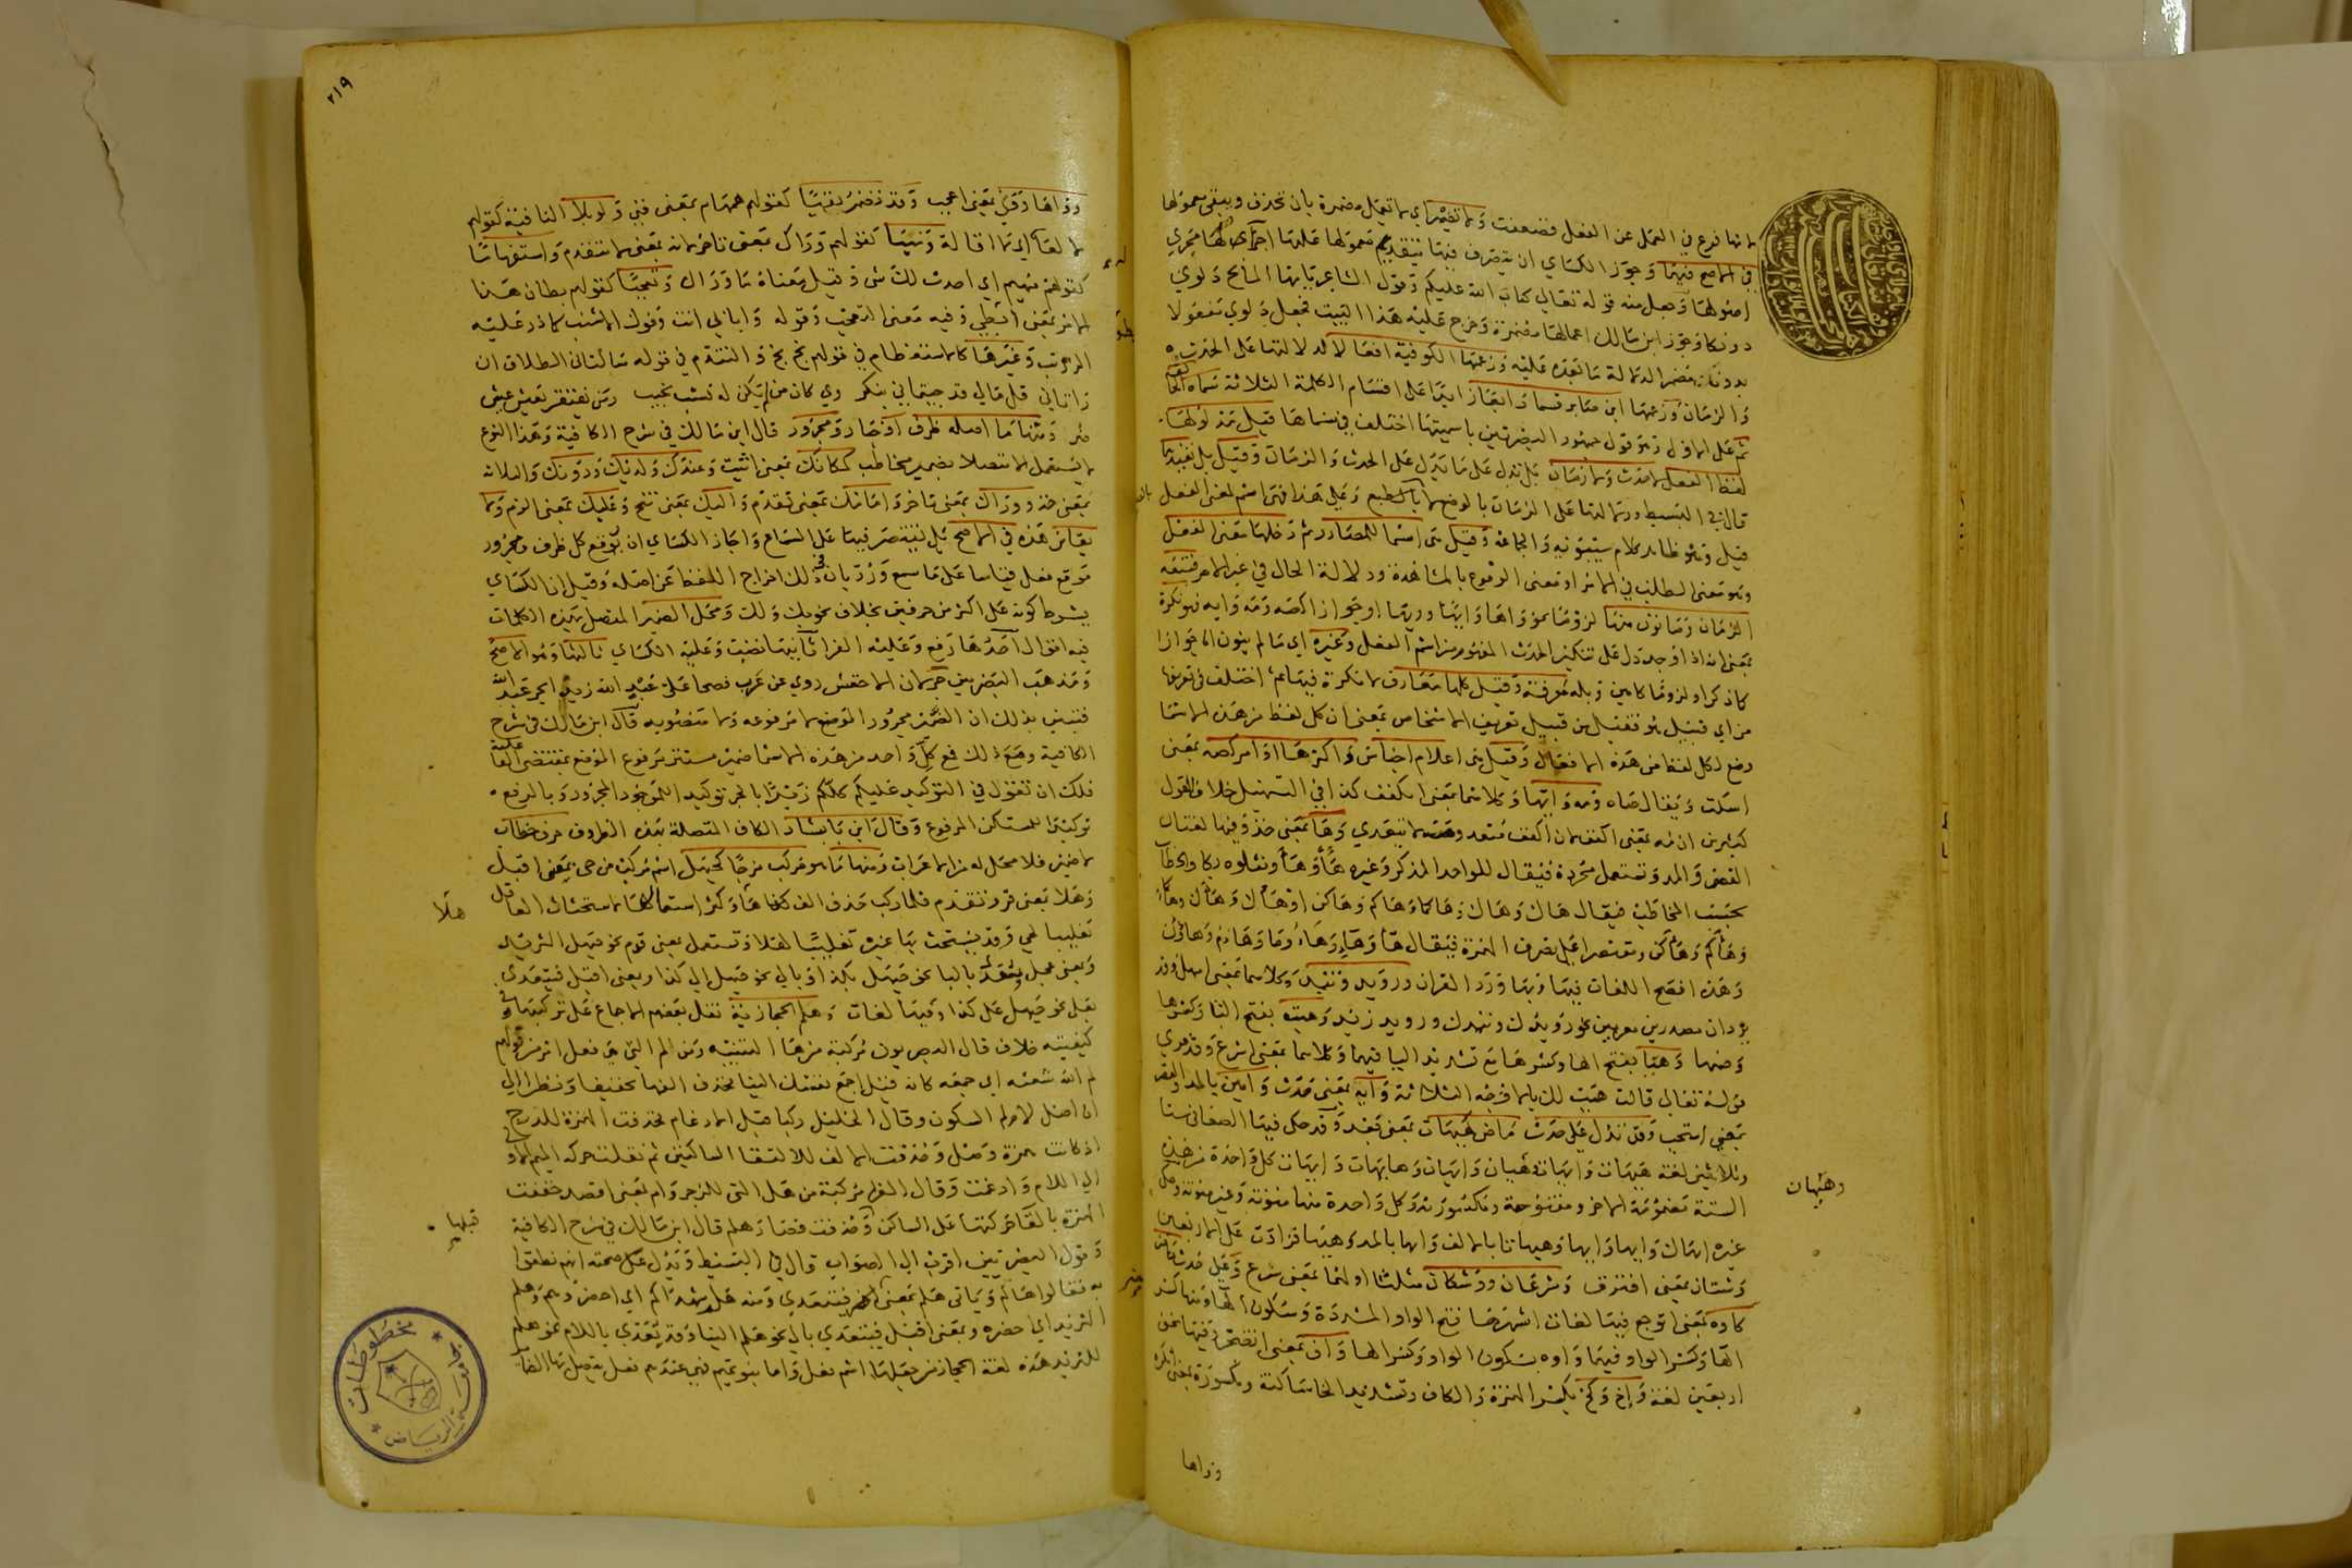 لانها فرع في العمل عن الفعل فضعفت ولا تضمر اي لا تعمل مضمرة بان تحذف ويبقى معمولها
في الاصح فيهما وجوز الكساي ان يتصرف فيها بتقديم معمولها عليها اجراء لها مجرى
اصولها وجعل منه قوله تعالى كتاب الله عليكم وقول الشاعر يايها المائح دلوي
دونكا وجوز ابن مالك اعمالها مضمرة وخرج عليه هذا البيت فجعل دلوي مفعولا
بدونك مضمرا لدلالة ما بعده عليه وزعمها الكوفية افعالا لدلالتها على الحدث
والزمان وزعمها ابن صابر قسما رابعا زايدا على اقسام الكلمة الثلاثة سماه الخالفة
ثم على الاول وهو قول جمهور البصريين باسميتها اختلف في مسماها قيل مدلولها
لفظ الفعل لا حدث ولا زمان بل تدل على ما يدل على الحدث والزمان وقيل بل تفيدهما
قال في البسيط ودلالتها على الزمان بالوضع لا بالطبع وعلى هذا فهي اسم لمعنى الفعل
قيل وهو ظاهر كلام سيبويه والجماعة وقيل هي اسما للمصادر ثم دخلها معنى الفعل
وهو معنى الطلب في الامر او معنى الوقوع بالمشاهدة ودلالة الحال في غير الامر فتتبعه
الزمان وما نون منها لزوما نحو واها وايها وويها او جوازا كصه ومه وايه فنكرة
بمعنى انه اذا وجد دل على تنكير الحدث المفهوم من اسم الفعل وغيره اي ما لم ينون الا جوازا
كما ذكر او لزوما كامين وبله معرفة وقيل كلها معارف لا نكرة فيها ثم اختلف في تعريفها
من اي قبيل هو فقيل من قبيل تعريف الاشخاص بمعنى ان كل لفظ من هذه الاسما
وضع لكل لفظ من هذه الافعال وقيل هي اعلام اجناس واكثرها اوامر كصه بمعنى
اسكت ويقال صاه ومه وايها وكلاهما بمعنى اكفف كذا في التسهيل خلافا لقول
كثيرين ان مه بمعنى اكفف لان اكفف متعد ومه لا يتعدى وها بمعنى خذ وفيها لغتان
القصر والمد وتستعمل مجردة فيقال للواحد المذكر وغيره ها وهاء ومتلوة بكاف الخطاب
بحسب المخاطب فيقال هاك وهاك وهاكما وهاكم وهاكن او هاءك وهاءك وهاءكما
وهاءكم وهاءكن وتقتصر على تصرف الهمزة فيقال هاء وهاء وهاءا وهاءم وهاؤن
وهذه افصح اللغات فيها وبها ورد القران ورويد وتيد وكلاهما بمعنى امهل وقد
يردان مصدرين معربين نحو رويدك وتيدك ورويد زيد وهيت بفتح التا وكسرها
وضمها وهيا بفتح الها وكسرها مع تشديد اليا فيهما وكلاهما بمعنى اسرع وقد قري
قوله تعالى قالت هيت لك بالاوجه الثلاثة وايه بمعنى حدث وامين بالمد والقصر
بمعنى استجب وقد تدل على حدث ماض كهيهات بمعنى بعد وقد حكى فيها الصغاني ستا
وثلاثين لغة هيهات وايهات وهيهان وايهان وهايهات وايهات كل واحدة من هذه
الستة مضمومة الاخر ومفتوحة ومكسورته وكل واحدة منها منونة وغير منونة وحكى
غيره ايهاك وايها وايها وهيهاتا بالالف وايها بالمد وهيها فزادت على الاربعين
وشتان بمعنى افترق وسرعان ووشكان مثلثا اولهما بمعنى سرع وعلى حدث حاضر
كاوه بمعنى اتوجع فيها لغات اشهرها فتح الواو المشددة وسكون الها ومنها كسر
الها وكسر الواو فيهما واوه بسكون الواو وكسر الها واف بمعنى اتضجر وفيها نحو
اربعين لغة واخ وكخ بكسر الهمزة والكاف وتشديد الخا ساكنة ومكسورة بمعنى اتكره
وواها
وهيهان
٢١٩
وواها ووي بمعنى اعجب وقد تضمن نفيا كقولهم همهام بمعنى فني ولو بلا النافية كقولهم
لا لعا اي لا اقالة ونهيا كقولهم وراك بمعنى تاخر لانه بمعنى لا تتقدم واستفهاما
كقولهم مهيم اي احدث لك شي وقيل معناه ما وراك وتعجبا كقولهم بطان هذا
الامر بمعنى ابطي وفيه معنى التعجب وقوله وابابي انت وفوك الاشنب كانما ذر عليه
الزرنب وغيرها كالاستعظام في قولهم بخ بخ والتندم في قوله سالتاني الطلاق ان
راتاني قل مالي قد جيتماني بنكر وي كان من يكن له نشب يحبب ومن يفتقر يعش عيش
ضر ومنها ما اصله ظرف او جار ومجرور قال ابن مالك في شرح الكافية وهذا النوع
لا يستعمل الا متصلا بضمير مخاطب كمكانك بمعنى اثبت وعندك ولديك ودونك والثلاثة
بمعنى خذ ووراك بمعنى تاخر وامامك بمعنى تقدم واليك بمعنى تنح وعليك بمعنى الزم ولا
يقاس هذه في الاصح بل يقتصر فيها على السماع واجاز الكساي ان يوقع كل ظرف ومجرور
موقع فعل قياسا على ما سمع ورد بان في ذلك اخراج اللفظ عن اصله وقيل ان الكساي
يشرط كونه على اكثر من حرفين بخلاف نحو بك ولك ومحل الضمير المتصل بهذه الكلمات
فيه اقوال احدها رفع وعليه الفرا ثانيها نصب وعليه الكساي ثالثها وهو الاصح
ومذهب البصريين جر لان الاخفش روى عن عرب فصحا على عبد الله زيدا بجر عبد الله
فتبين بذلك ان الضمير مجرور الموضع لا مرفوعه ولا منصوبه قال ابن مالك في شرح
الكافية ومع ذلك فمع كل واحد من هذه الاسما ضمير مستتر مرفوع الموضع بمقتضى الفاعلية
فلك ان تقول في التوكيد عليكم كلكم زيدا بالجر توكيدا للموجود المجرور وبالرفع
توكيدا للمستكن المرفوع وقال ابن بابشاذ الكاف المتصلة بهذه الظروف حرف خطاب
لا ضمير فلا محل له من الاعراب ومنها ما هو مركب مزجا كحيهل اسم مركب من حي بمعنى اقبل
وهلا بمعنى قر وتقدم فلما ركب حذف الفها وكثر استعمالها لاستحثاث العاقل
تغليبا لحي وقد يستحث بها غيره تغليبا لهلا وتستعمل بمعنى قوم نحو حيهل الثريد
وبمعنى عجل ويتعدى بالبا نحو حيهل بكذا او بالى نحو حيهل الى كذا وبمعنى اقبل فيتعدى
بعلى نحو حيهل على كذا وفيها لغات وهلم الحجازية نقل بعضهم الاجماع على تركيبها وفي
كيفيته خلاف قال البصريون مركبة من ها التنبيه ومن لم التي هي فعل امر من قولهم
لم الله شعثه اي جمعه كانه قيل اجمع نفسك الينا فحذف الفها تخفيفا ونظرا الى
ان اصل لام لم السكون وقال الخليل ركبا قبل الادغام فحذفت الهمزة للدرج
اذ كانت همزة وصل وحذفت الالف لالتقا الساكنين ثم نقلت حركة الميم الاولى
الى اللام وادغمت وقال الفرا مركبة من هل التي للزجر وام بمعنى اقصد خففت
الهمزة بالقا حركتها على الساكن وحذفت فصار هلم قال ابن مالك في شرح الكافية
وقول البصريين اقرب الى الصواب قال في البسيط ويدل على صحته انهم نطقوا
به فقالوا هالم وياتي هلم بمعنى احضر فيتعدى ومنه هلم شهداكم اي احضروهم وهلم
الثريد اي احضره وبمعنى اقبل فيتعدى بالى نحو هلم الينا وقد يتعدى باللام نحو هلم
للثريد هذه لغة الحجاز من جعلها اسم فعل واما بنو تميم فهي عندهم فعل يتصل بها الضماير
هلا
قبلها
مخطوطات
جامعة الرياض